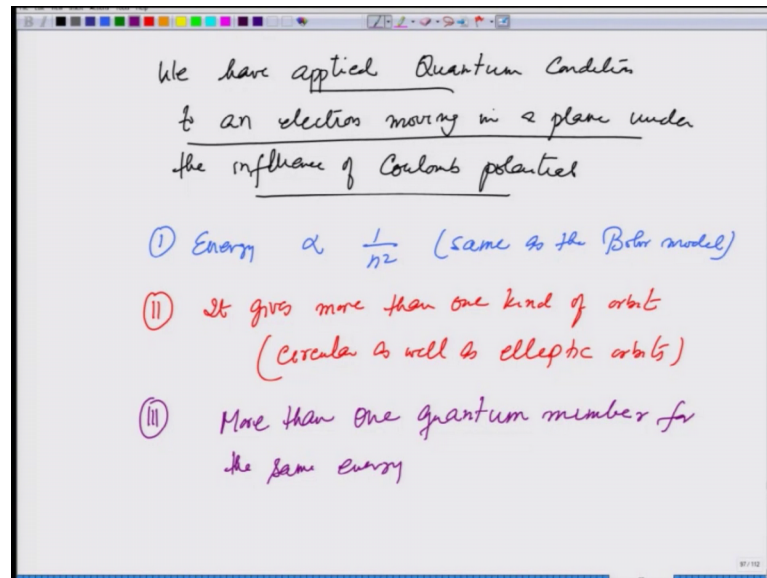 We have applied Quantum Condition
to an electron moving in a plane under
the influence of Coulomb potential
(I) Energy α 1/n2 (same as the Bohr model)
(II) It gives more than one kind of orbit
(circular as well as elliptic orbits)
(III) More than one quantum number for
the same energy
97/112